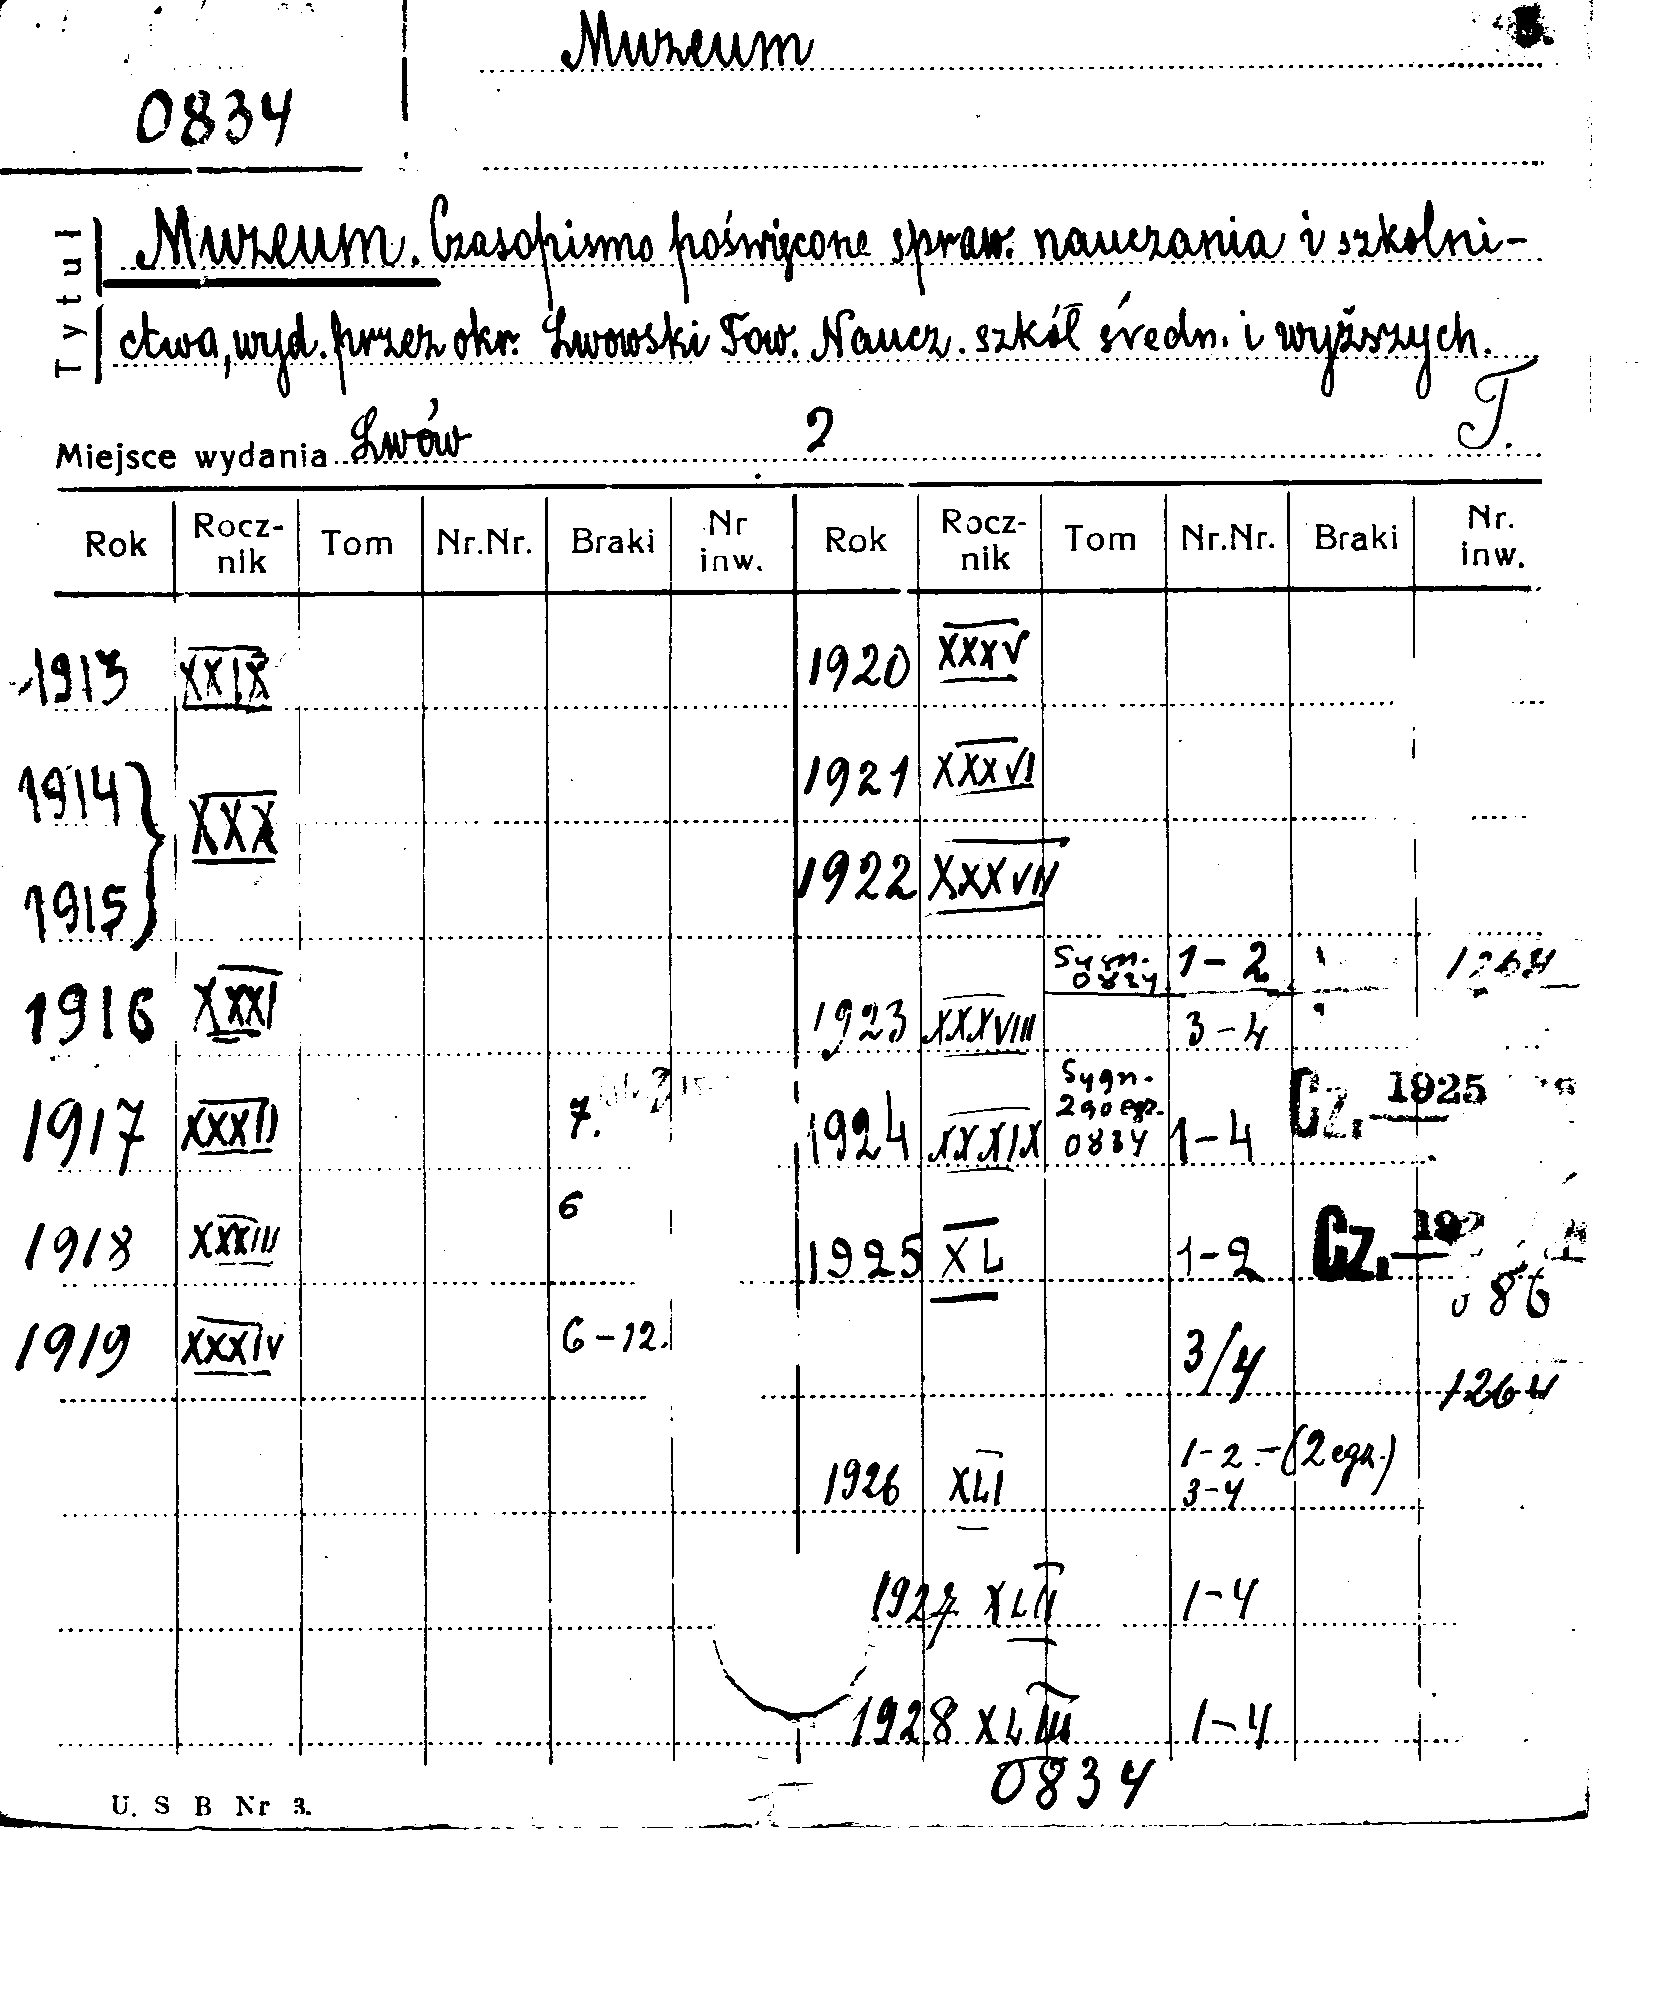 Muzeum
0834
Tytuł
Muzeum. Czasopismo poświęcone spraw. nauczania i szkolni-
ctwa, wyd. przez okr. Lwowski Tow. Naucz. szkół średn. i wyższych.
Miejsce wydania Lwów 2 T.
Rok Rocz-nik Tom Nr.Nr. Braki Nr inw. Rok Rocz-nik Tom Nr.Nr. Braki Nr. inw.
1913 XXIX
1914 } XXX
1915
1916 XXXI
1917 XXXII 7.
1918 XXXIII 6
1919 XXXIV 6-12.
1920 XXXV
1921 XXXVI
1922 XXXVII
Sygn. 0834 1-2 1264
1923 XXXVIII 3-4
1924 XXXIX Sygn. 2go egz. 0834 1-4 Cz. 1925
1925 XL 1-2 Cz. 192
86
3/4 1264
1926 XLI 1-2 - (2 egz.)
3-4
1927 XLII 1-4
1928 XLIII 1-4
0834
U. S B Nr 3.